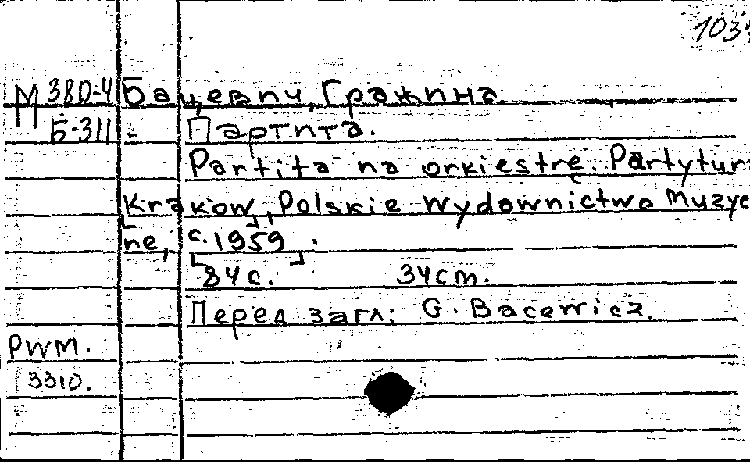 103
М 380-4 Бацевич, Гражина.
Б-311 - Партита.
Partita na orkiestrę. Partytur
Kraków, Polskie Wydownictwo Muzyc
ne, c. 1959.
84 с. 34 cm.
Перед загл: G. Bacewicz.
PWM.
3310.